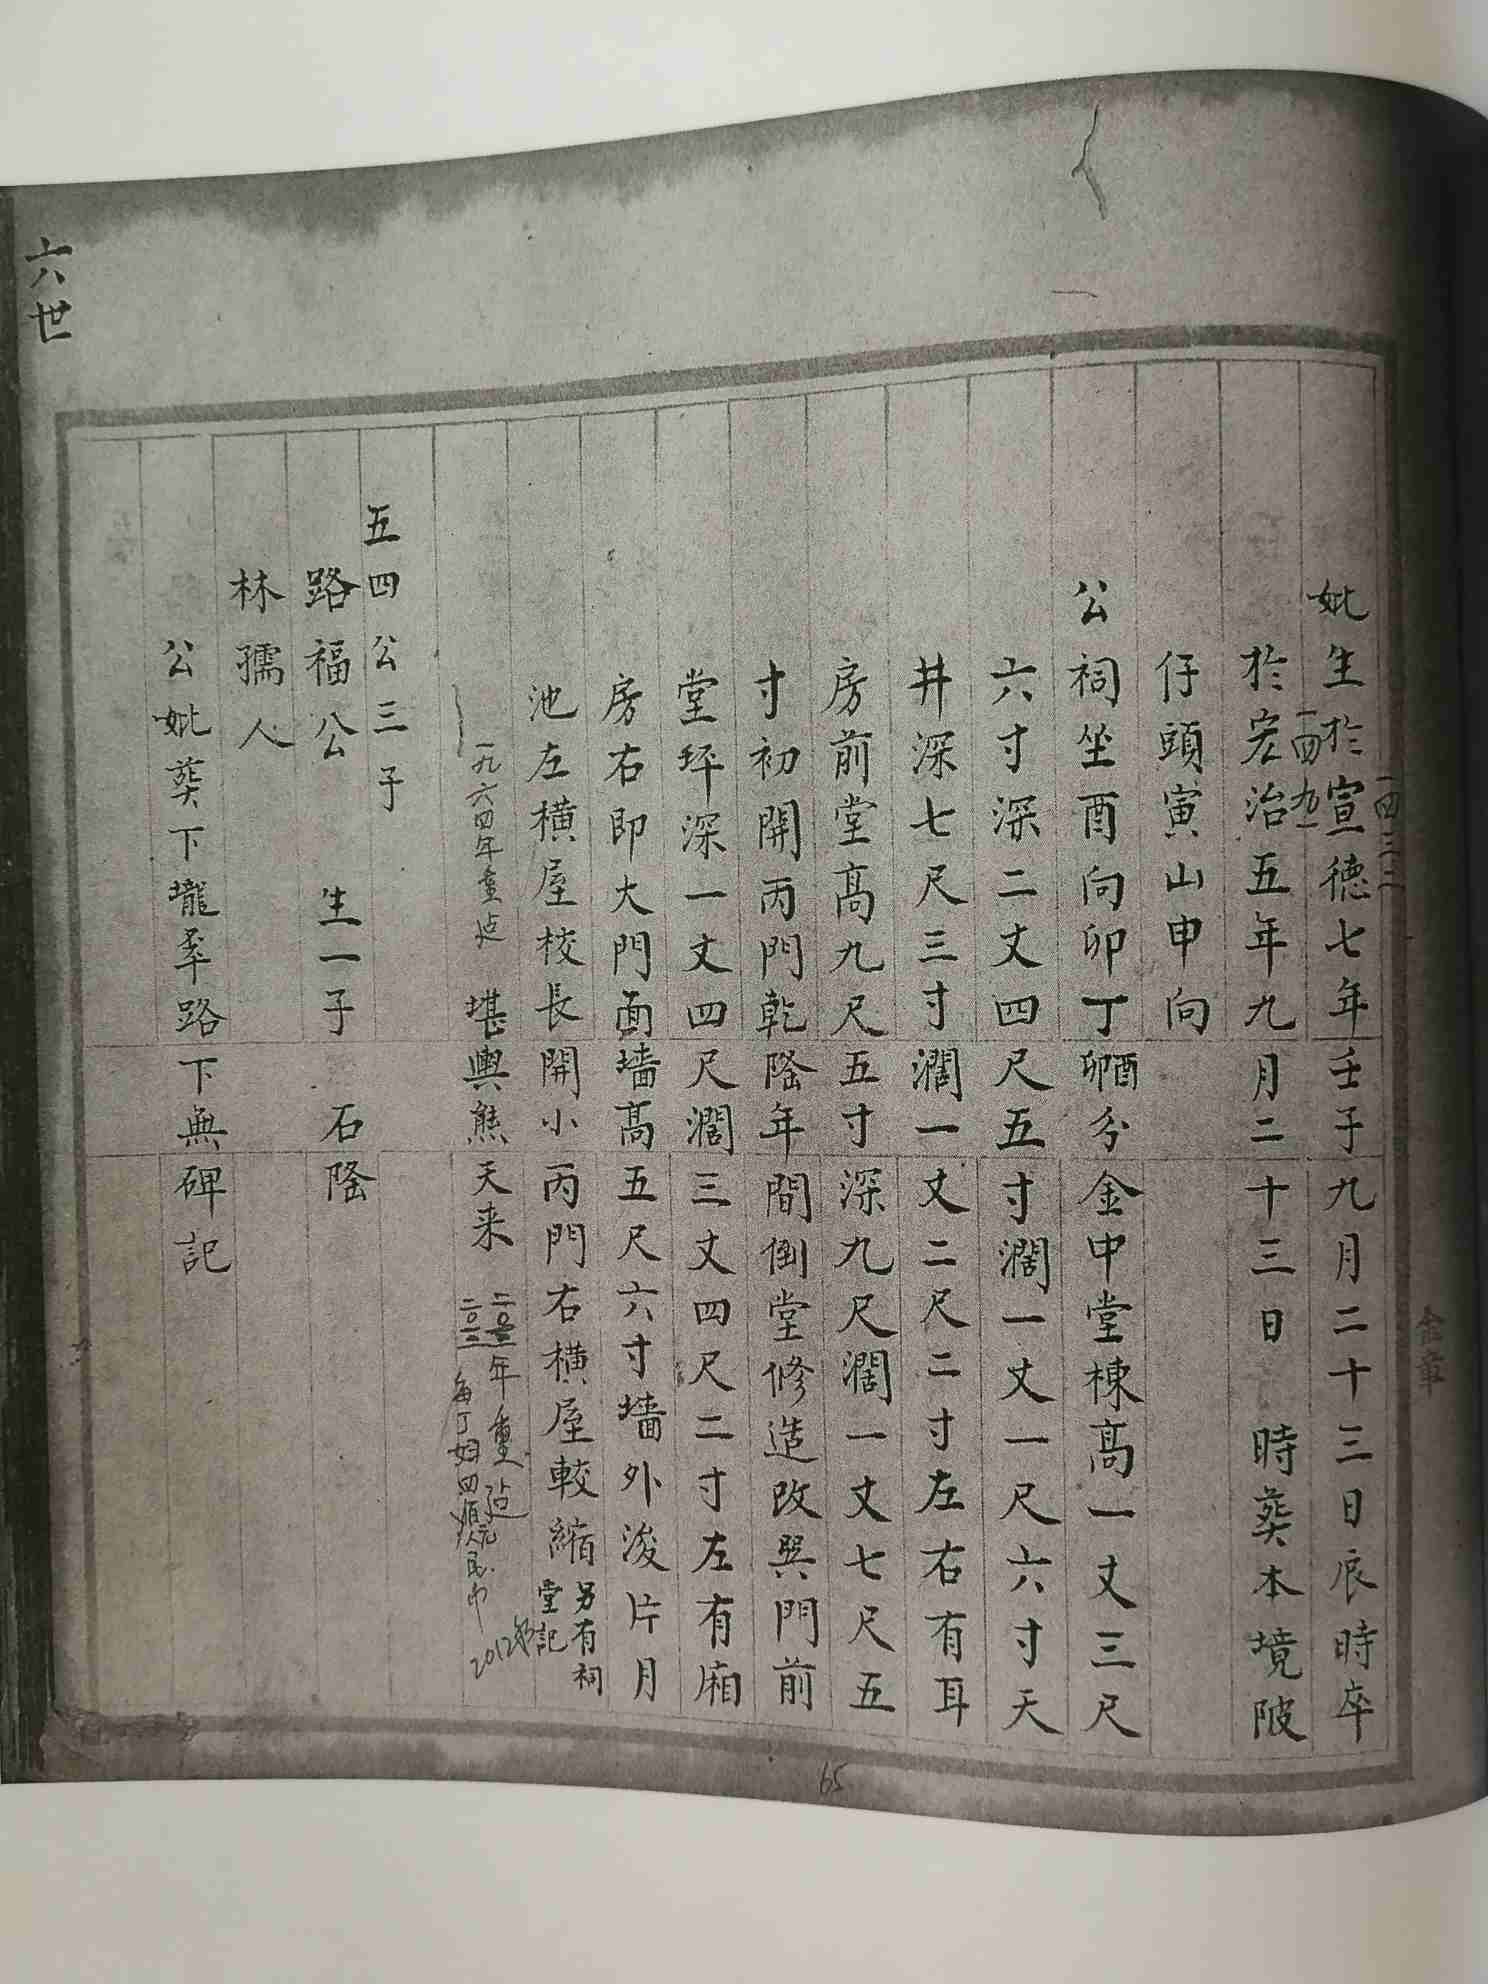 妣生於宣德七年壬子九月二十三日辰時卒
一四三二
於宏治五年九月二十三日　時葬本境陂
一四九一
仔頭寅山申向
公祠坐酉向卯丁卯酉分金中堂棟高一丈三尺
六寸深二丈四尺五寸濶一丈一尺六寸天
井深七尺三寸濶一丈二尺二寸左右有耳
房前堂高九尺五寸深九尺濶一丈七尺五
寸初開丙門乾隆年間倒堂修造改巽門前
堂坪深一丈四尺濶三丈四尺二寸左有廂
房右即大門面墙高五尺六寸墙外浚片月
池左橫屋校長開小丙門右橫屋較縮另有祠
堂記
一九六四年重边　堪輿熊天来
二〇一二年重边
二〇一二
每丁妇四
元
人民巾
2012
五四公三子
路福公　生一子　石隆
林孺人
公妣葬下壠牽路下無碑記
六世
65